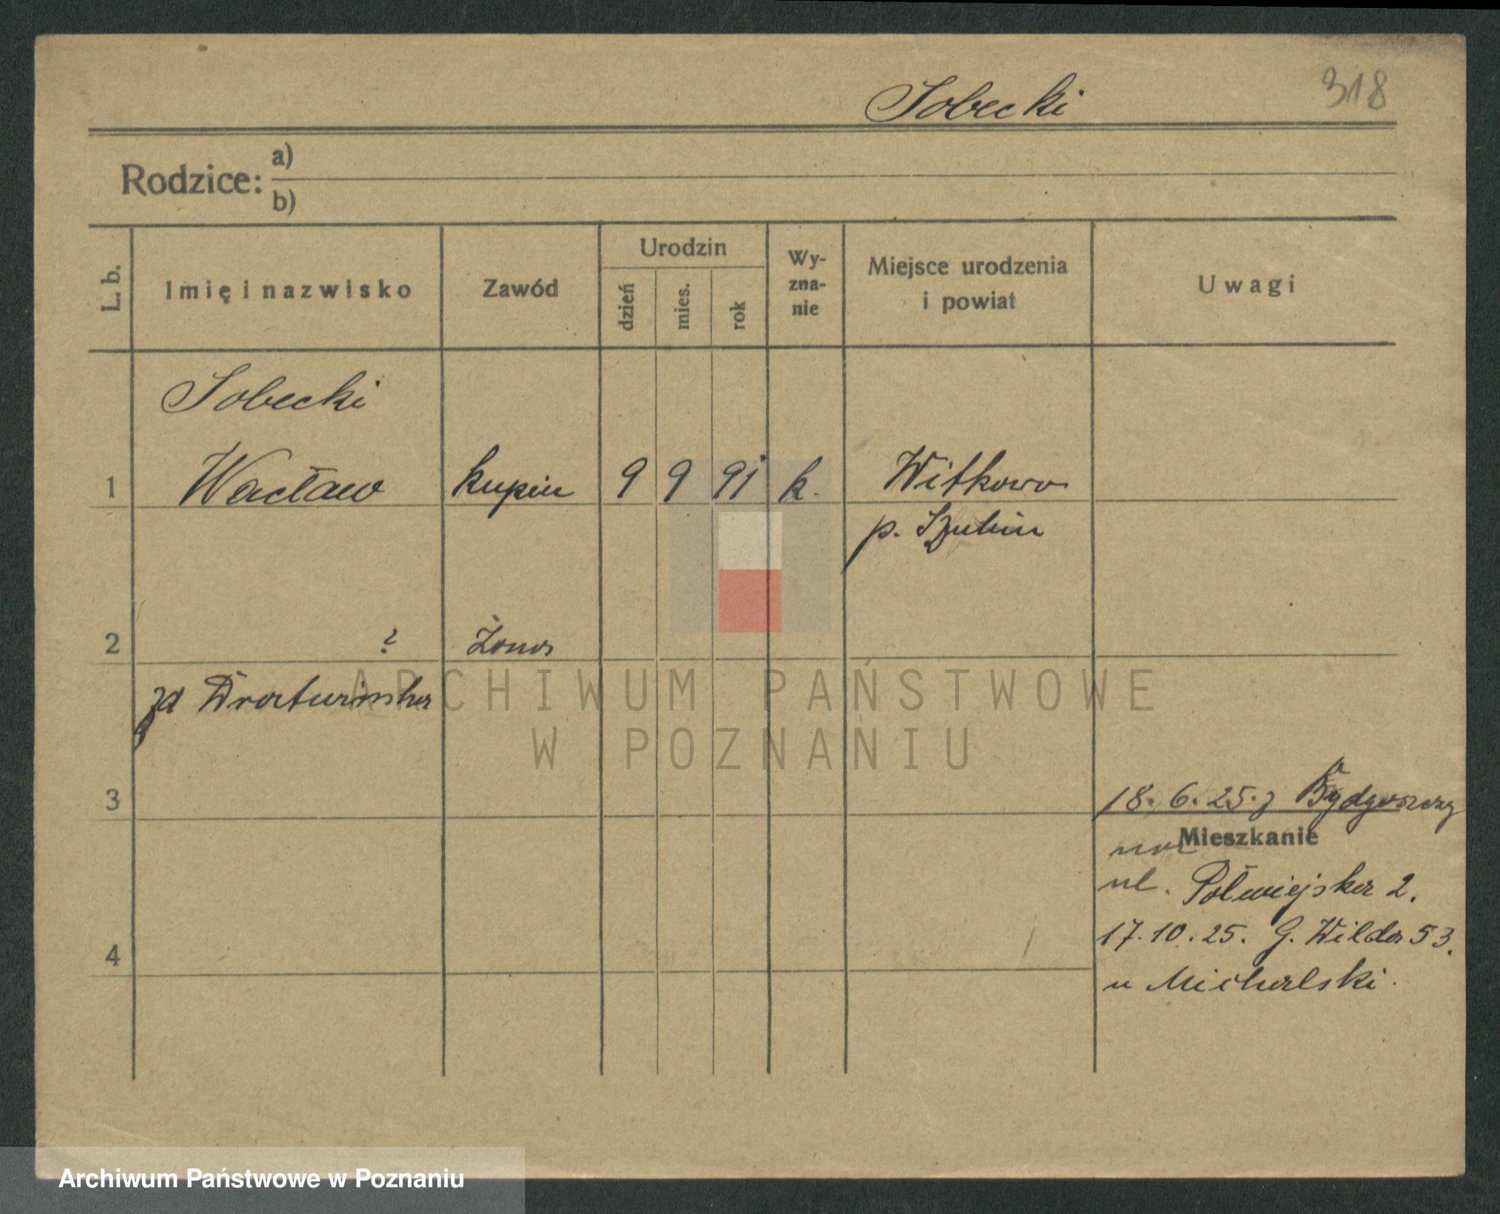 318
Sobecki
Rodzice: a)
b)
L. b.
Imię i nazwisko
Zawód
Urodzin
dzień
mies.
rok
Wy-
zna-
nie
Miejsce urodzenia
i powiat
Uwagi
Sobecki
1 Wacław kupiec 9 9 91 k. Witkowo
p. Szubin
2 ? Żona
zd
3
18. 6. 25. z Bydgoszczy
Mieszkanie
na
ul. Półwiejska 2.
17. 10. 25. G. Wilda 53.
4
u Michalski.
ARCHIWUM PAŃSTWOWE
W POZNANIU
Archiwum Państwowe w Poznaniu